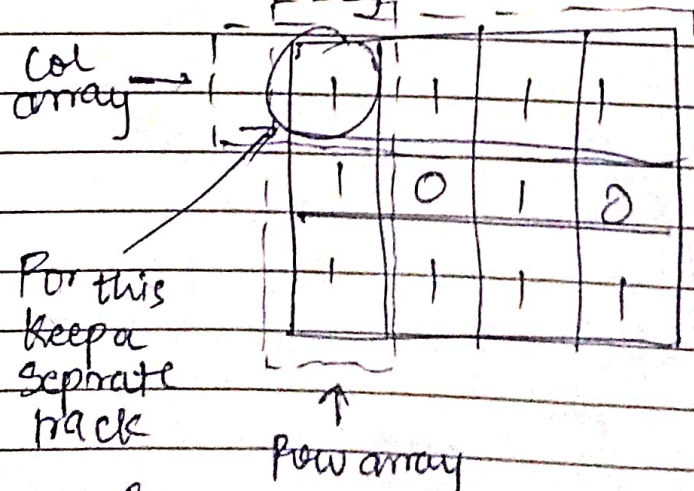 Col
array →
1 1 1 1
1 0 1 0
1 1 1 1
For this
Keep a
Seprate
track
↑
Row array